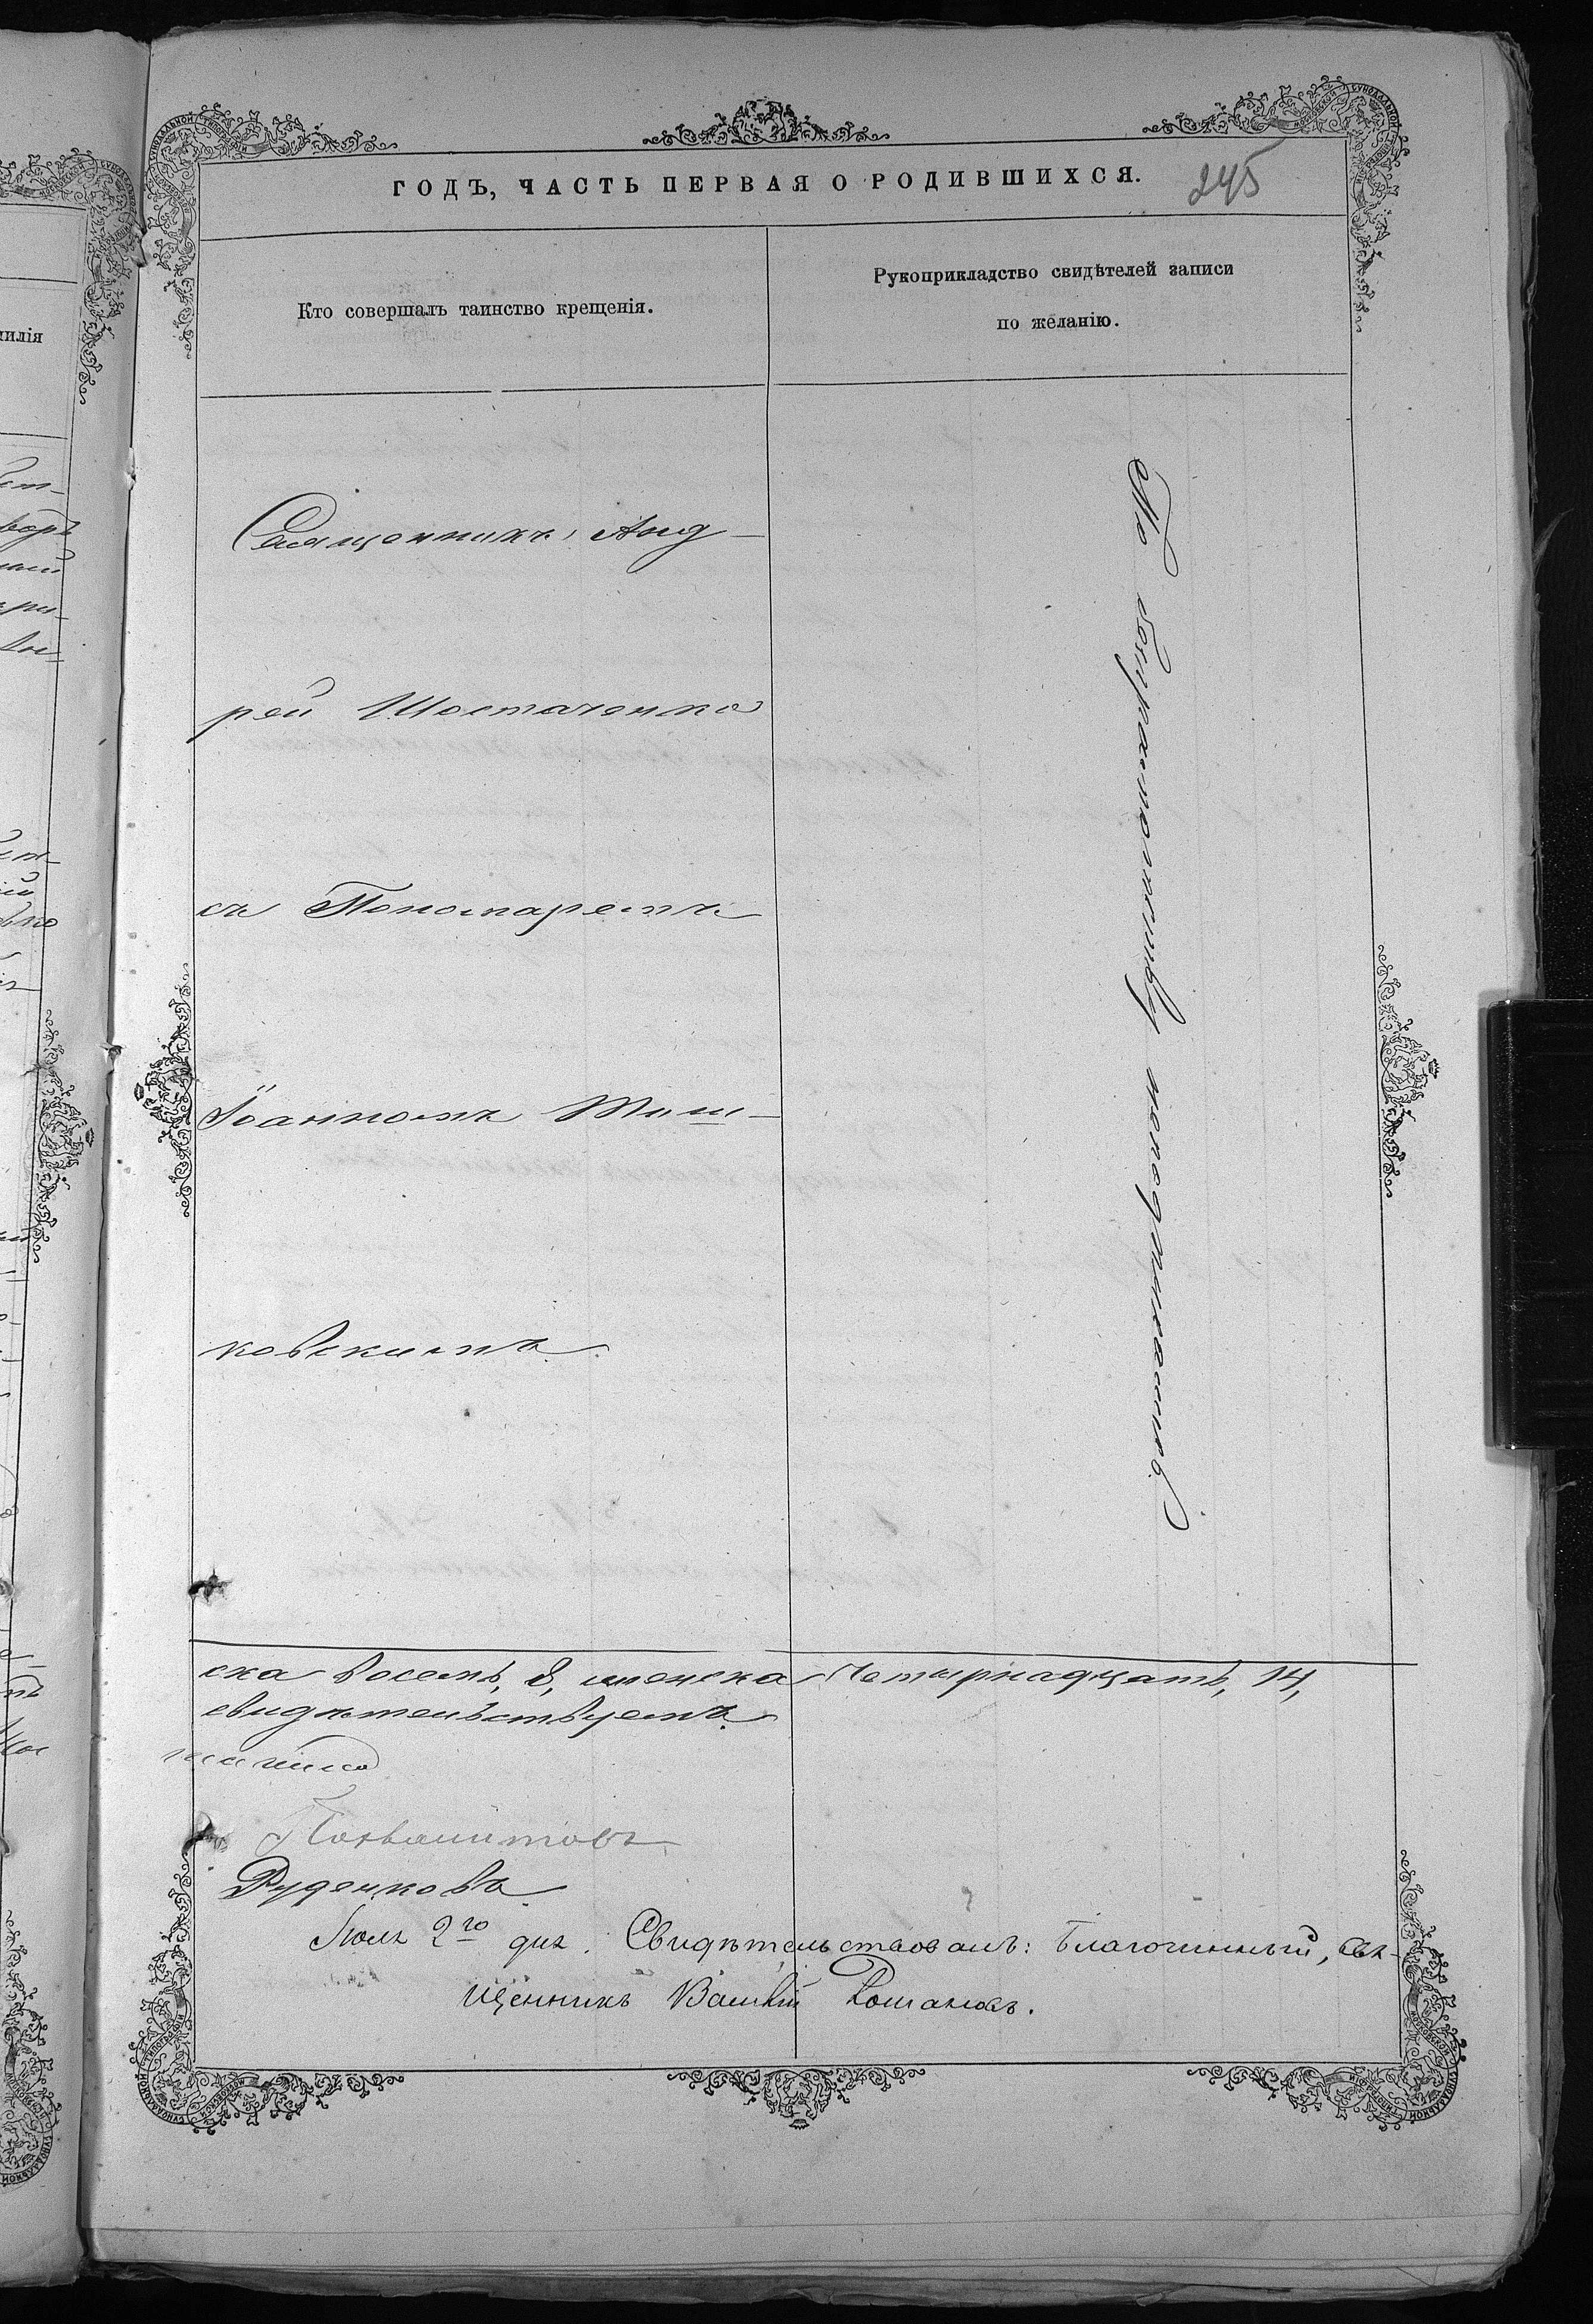 ГОДЪ, ЧАСТЬ ПЕРВАЯ О РОДИВШИХСЯ.
245
Кто совершалъ таинство крещенія.
Рукоприкладство свидѣтелей записи
по желанію.
Священникъ Анд-
рей Шостаченко
съ Пономаремъ
Іоанномъ Тиш-
ковскимъ.
По безграмотности
ска восемь, 8, женска четырнадцать, 14,
свидѣтельствуемъ.
Руденковъ
Іюля 2го дня. Свидѣтельствовалъ: Благочинный, свя-
щенникъ Василій Романовъ.